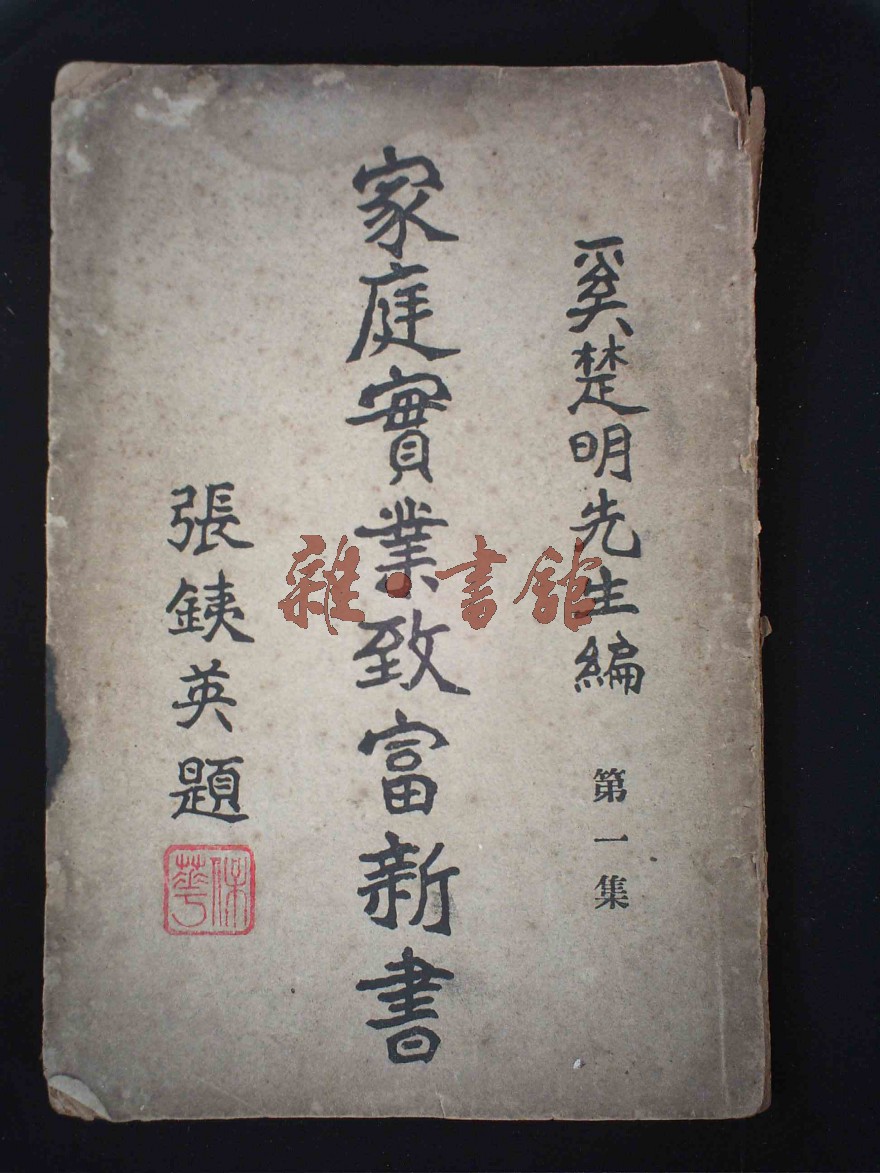 奚楚明先生編
第一集
家庭實業致富新書
張銕英題
保華
雜·書館